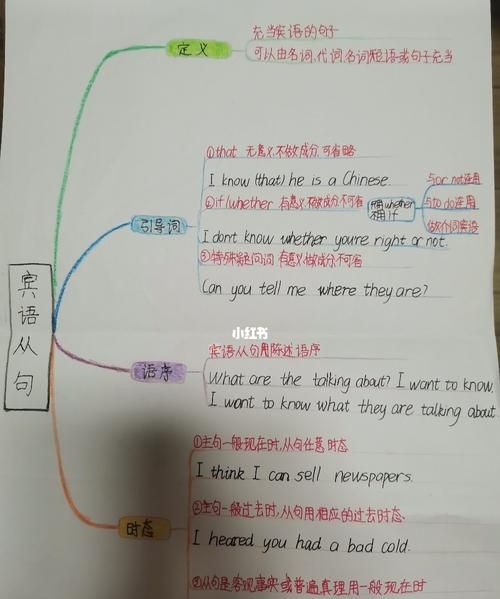 充当宾语的句子
定义
可以由名词、代词、名词短语或句子充当
①that 无意义,不做成分,可省略
I know (that) he is a Chinese.
②if/whether 有意义,不做成分,不可省
用whether
不用if
与or not连用
与to do连用
做介词宾语
引导词
I dont know whether youre right or not.
③特殊疑问词 有意义,做成分,不可省
Can you tell me where they are?
宾语从句
小红书
宾语从句用陈述语序
语序
What are the talking about? I want to know
I want to know what they are talking about
①主句一般现在时,从句任意时态
I think I can sell newspapers.
②主句一般过去时,从句用相应的过去时态.
时态
I heared you had a bad cold.
从句是客观事实或普遍真理用一般现在时